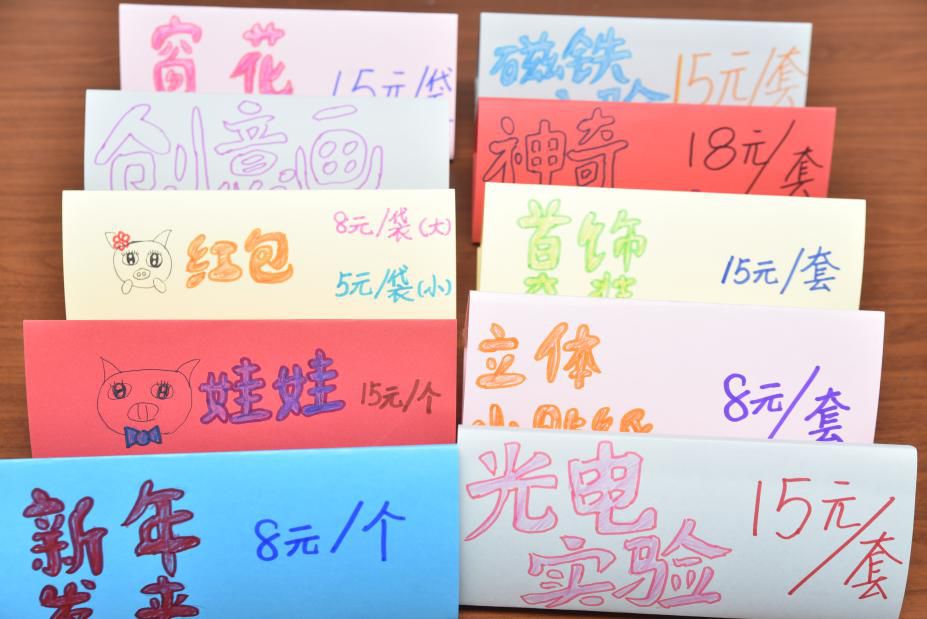 窗花
15元/袋
创意画
红包
8元/袋(大)
5元/袋(小)
娃娃
15元/个
新年
8元/个
磁铁
实验
15元/套
神奇
18元/套
首饰
套装
15元/套
立体
小贴纸
8元/套
光电
实验
15元/套